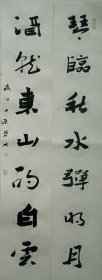 琴临秋水弹明月
酒就东山酌白云